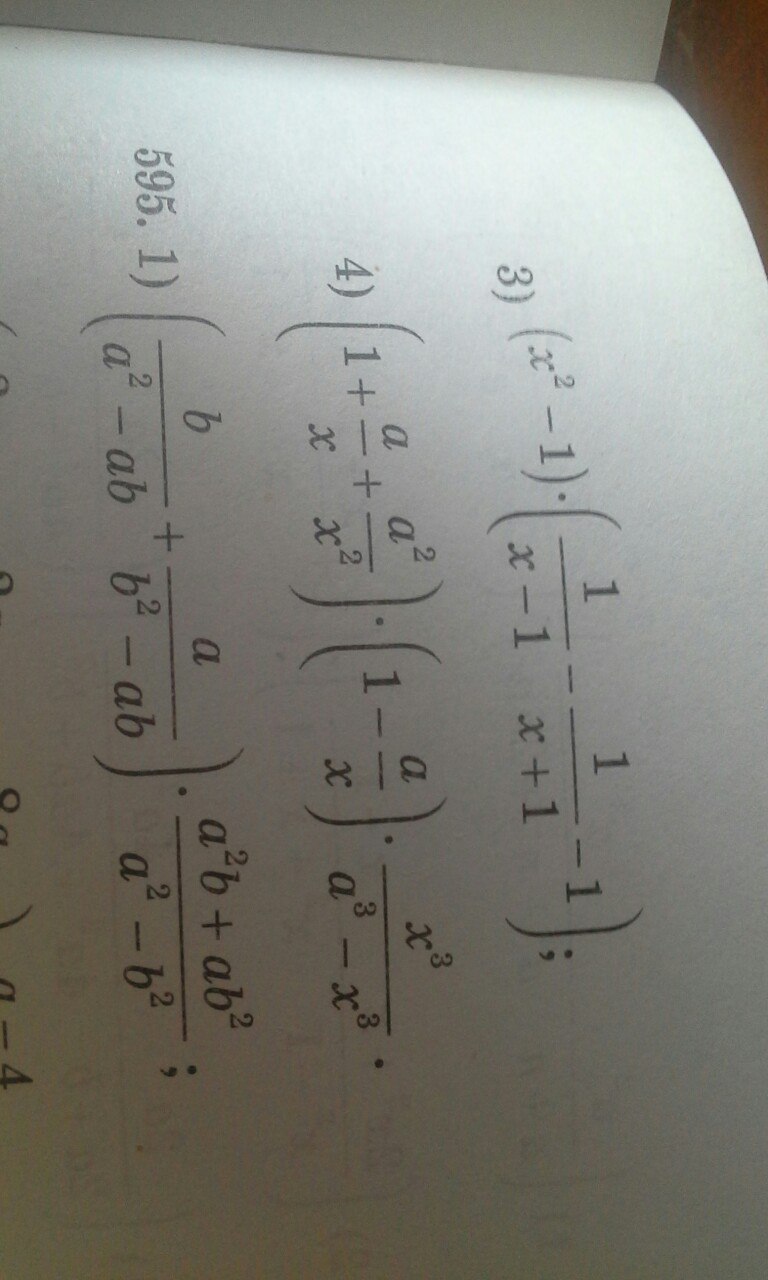 3) (x² − 1) · (1/(x − 1) − 1/(x + 1) − 1);
4) (1 + a/x + a²/x²) · (1 − a/x) · x³/(a³ − x³).
595. 1) (b/(a² − ab) + a/(b² − ab)) · (a²b + ab²)/(a² − b²);
a − 4